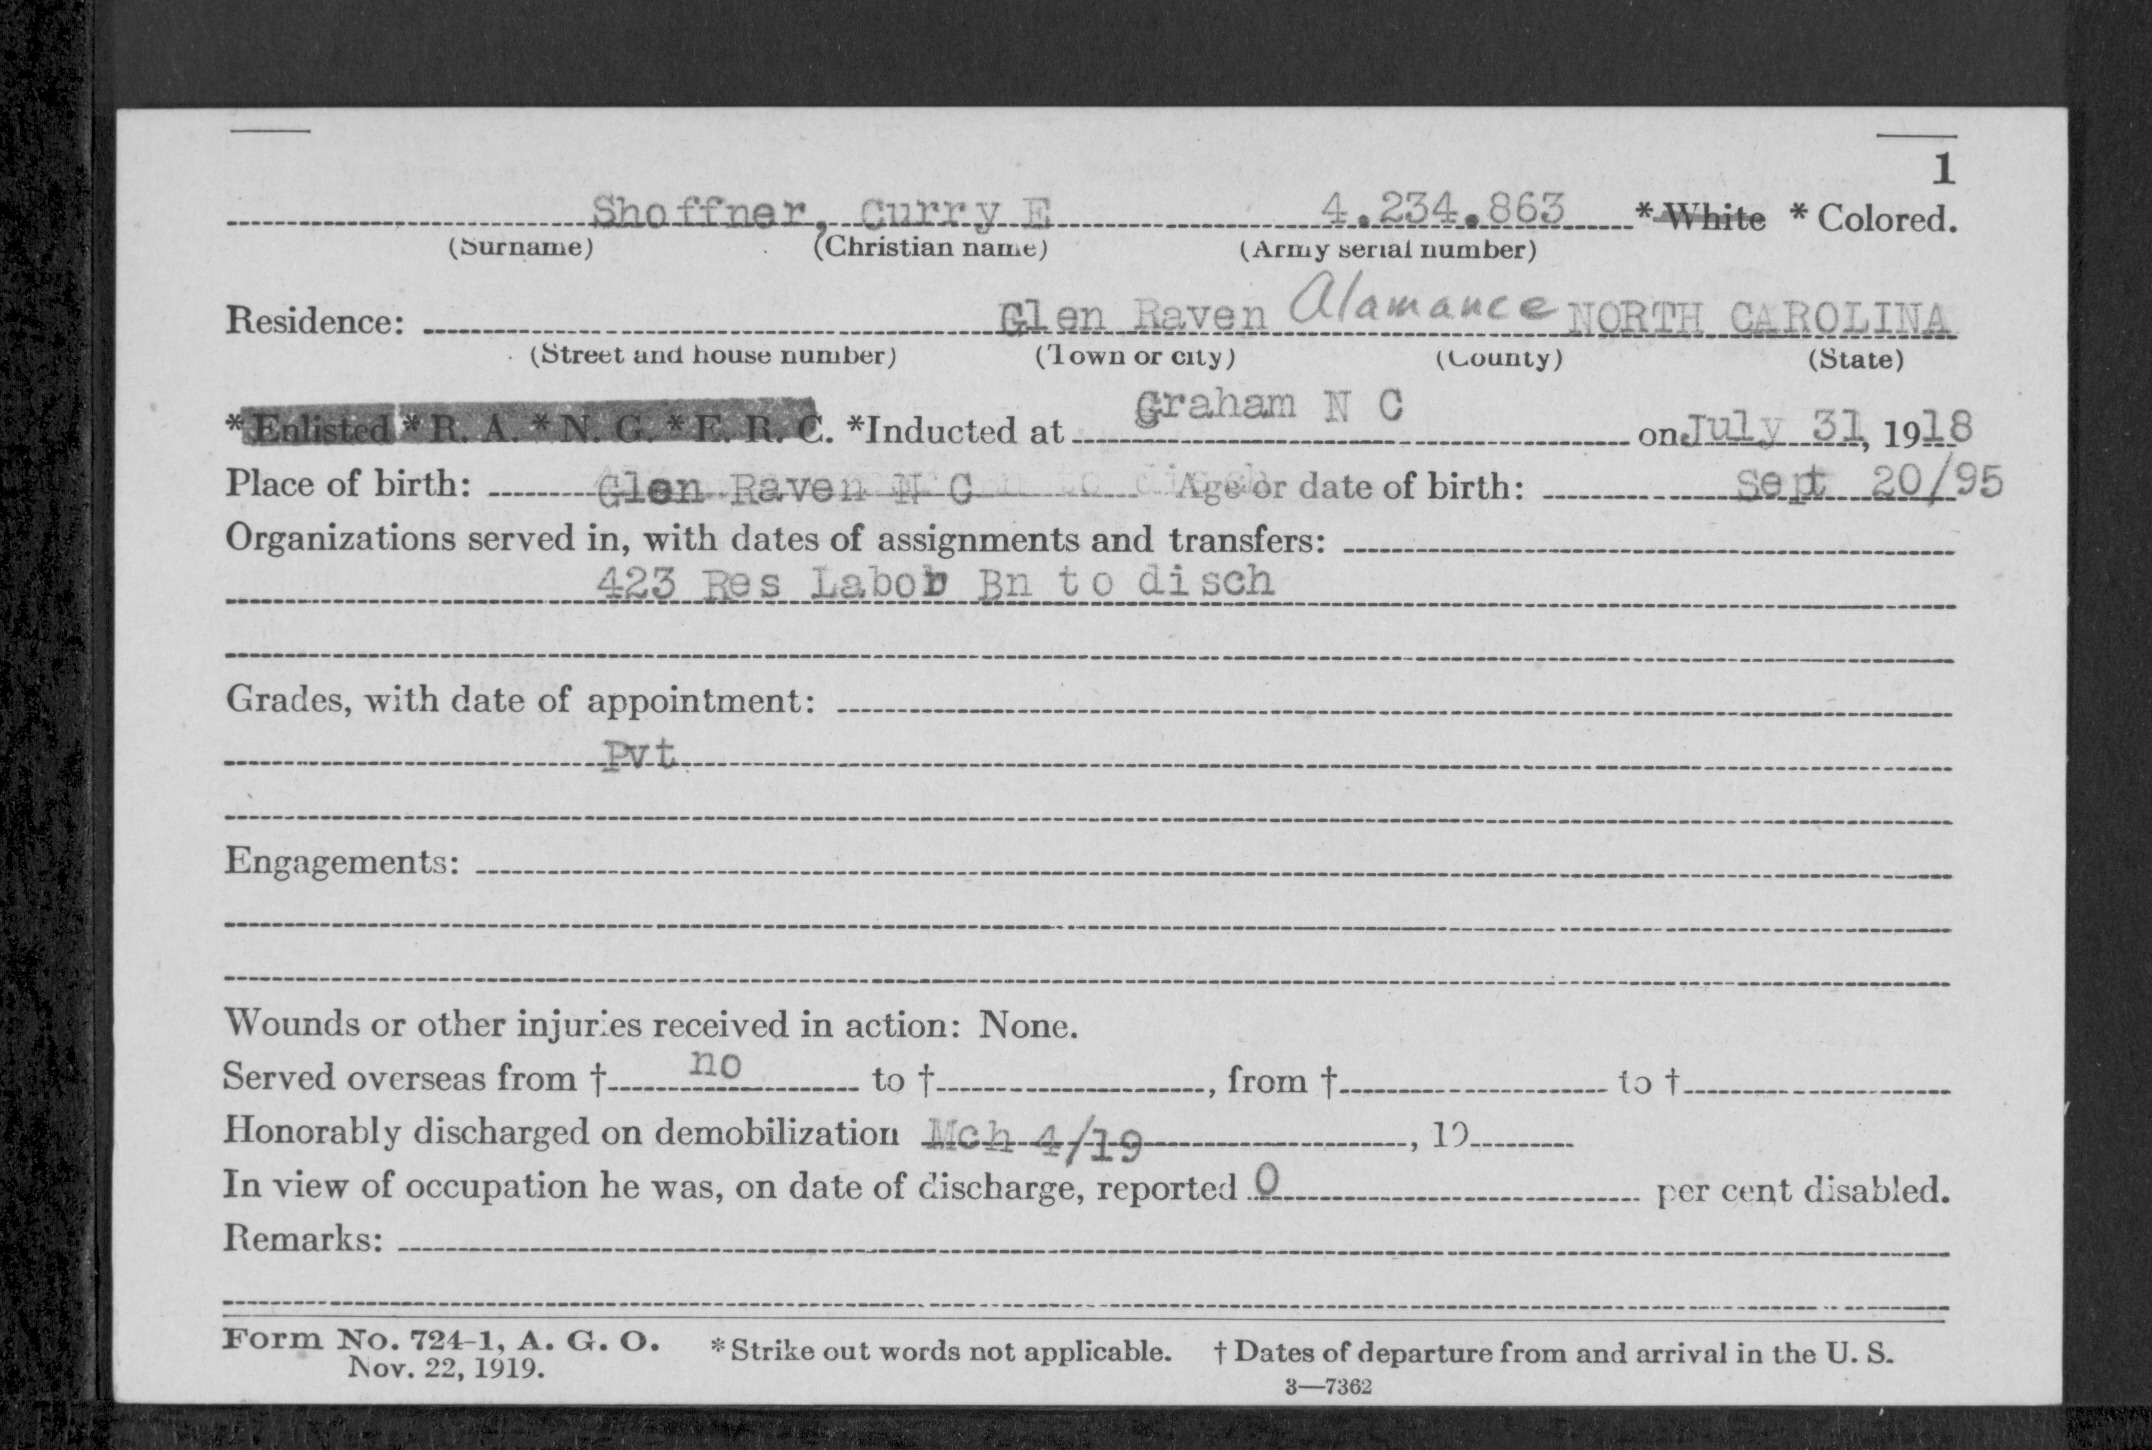 1
Shoffner, Curry E 4.234.863 * White * Colored.
(Surname) (Christian name) (Army serial number)
Residence: Glen Raven Alamance NORTH CAROLINA
(Street and house number) (Town or city) (County) (State)
* Enlisted * R. A. * N. G. * E. R. C. *Inducted at Graham N C on July 31, 1918
Place of birth: Glen Raven N C Age or date of birth: Sept 20/95
Organizations served in, with dates of assignments and transfers:
423 Res Labor Bn to disch
Grades, with date of appointment:
Pvt
Engagements:
Wounds or other injuries received in action: None.
Served overseas from † no to †, from † to †
Honorably discharged on demobilization Mch 4/19, 19
In view of occupation he was, on date of discharge, reported 0 per cent disabled.
Remarks:
Form No. 724-1, A. G. O. * Strike out words not applicable. † Dates of departure from and arrival in the U. S.
Nov. 22, 1919.
3—7362